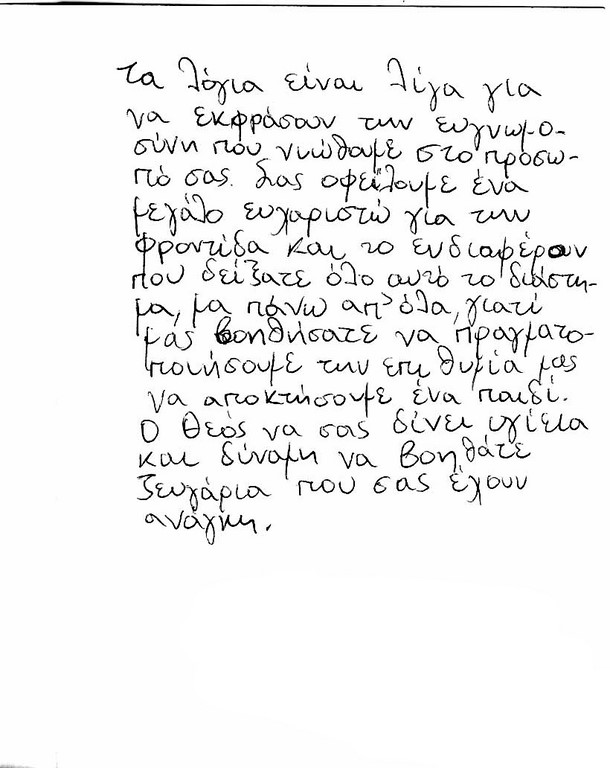 Τα λόγια είναι λίγα για
να εκφράσουν την ευγνωμο-
σύνη που νιώθουμε στο πρόσω-
πό σας. Σας οφείλουμε ένα
μεγάλο ευχαριστώ για την
φροντίδα και το ενδιαφέρον
που δείξατε όλο αυτό το διάστη-
μα, μα πάνω απ' όλα, γιατί
μας βοηθήσατε να πραγματο-
ποιήσουμε την επιθυμία μας
να αποκτήσουμε ένα παιδί.
Ο Θεός να σας δίνει υγίεια
και δύναμη να βοηθάτε
ζευγάρια που σας έχουν
ανάγκη.